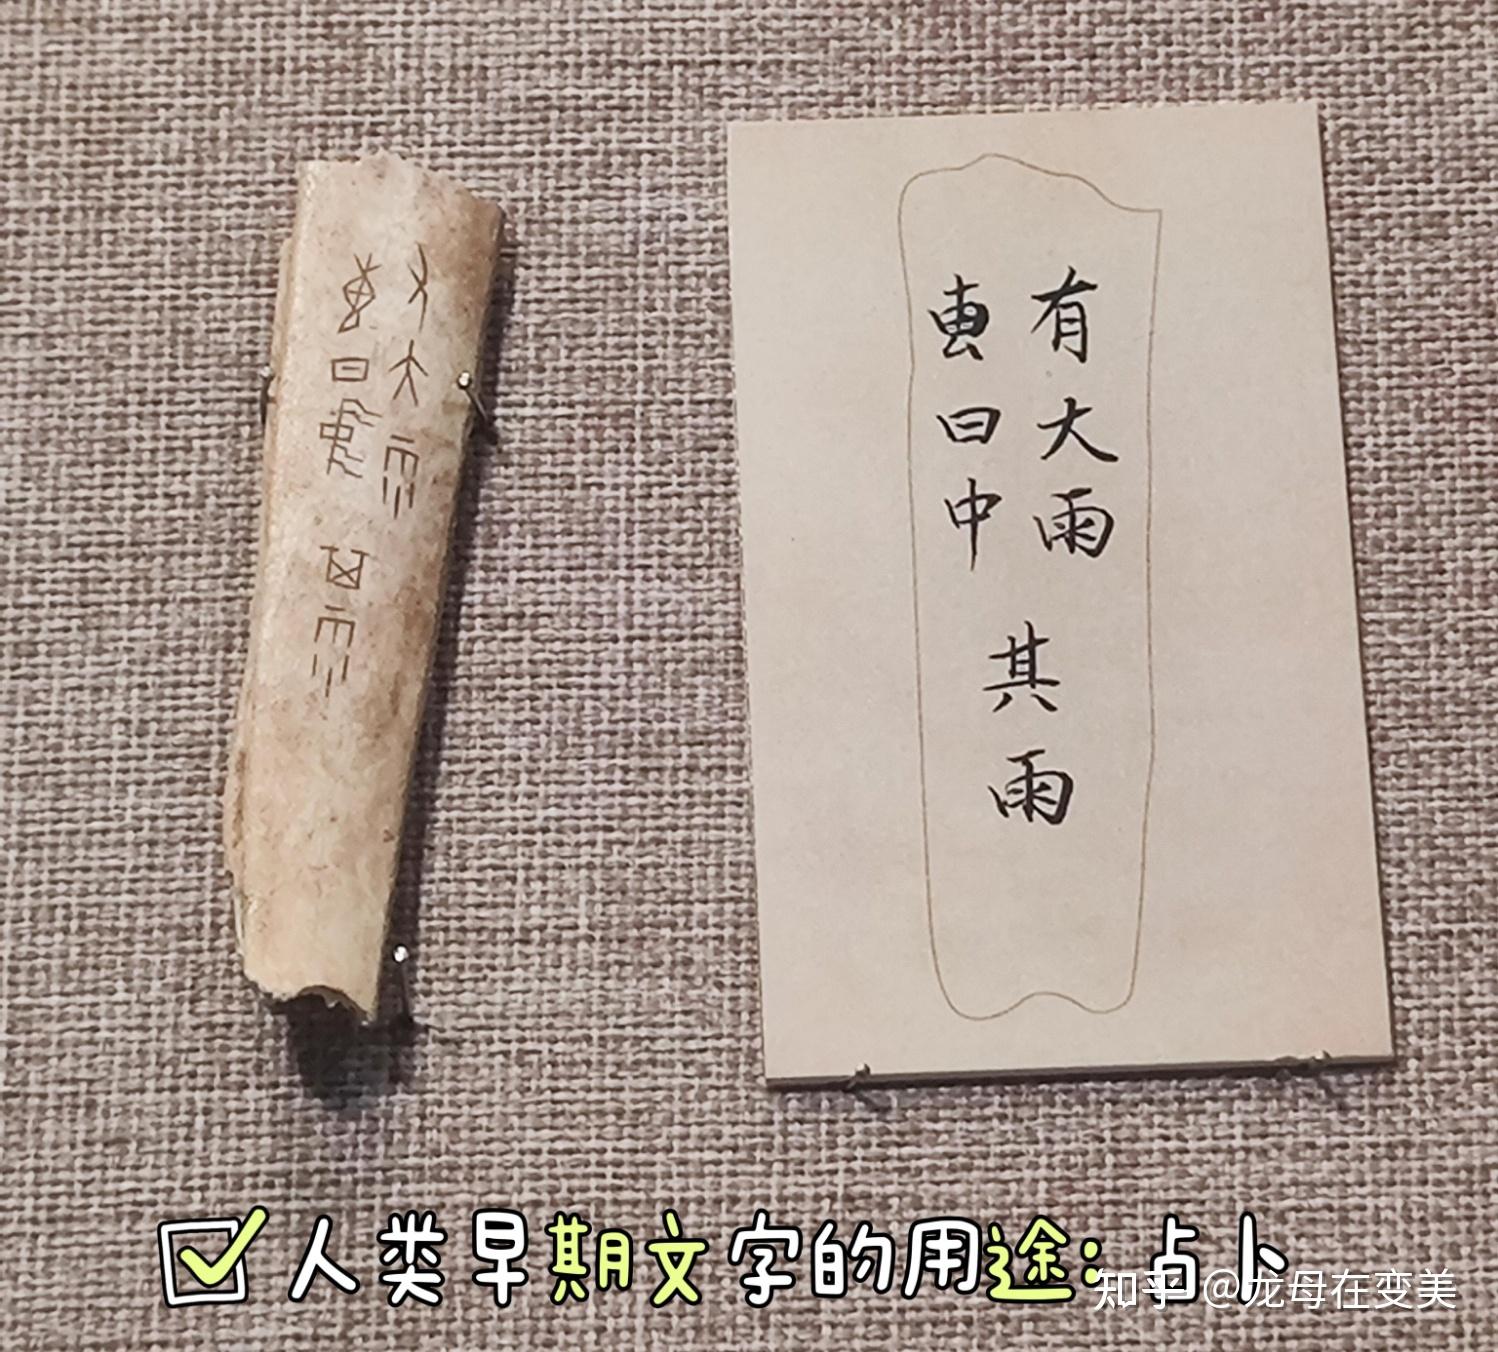 有大雨
叀曰中
其雨
人类早期文字的用途：占卜
知乎 @龙母在变美